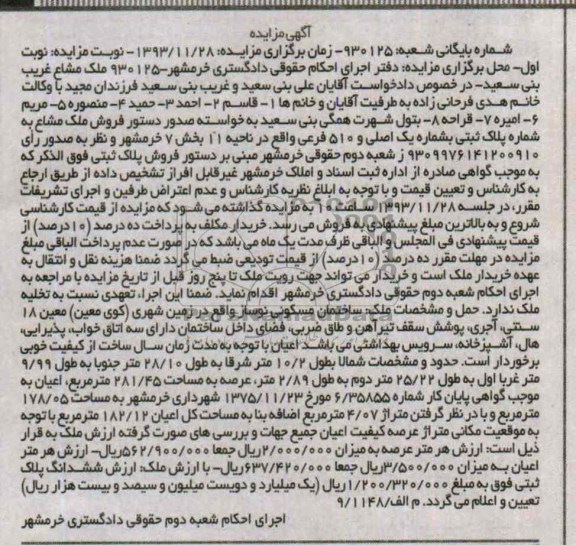 آگهی مزایده
شماره بایگانی شعبه: ۹۳۰۱۲۵- زمان برگزاری مزایده: ۱۳۹۳/۱۱/۲۸- نوبت مزایده: نوبت
اول- محل برگزاری مزایده: دفتر اجرای احکام حقوقی دادگستری خرمشهر-۹۳۰۱۲۵ ملک مشاع غریب
بنی سعید- در خصوص دادخواست آقایان علی بنی سعید و غریب بنی سعید فرزندان مجید با وکالت
خانم هدی فرحانی زاده به طرفیت آقایان و خانم ها ۱- قاسم ۲- احمد ۳- حمید ۴- منصوره ۵- مریم
۶- امیره ۷- قراحه ۸- بتول شهرت همگی بنی سعید به خواسته صدور دستور فروش ملک مشاع به
شماره پلاک ثبتی بشماره یک اصلی و ۵۱۰ فرعی واقع در ناحیه ۱۱ بخش ۷ خرمشهر و نظر به صدور رأی
۹۳۰۹۹۷۶۱۴۱۲۰۰۹۱۰ ز شعبه دوم حقوقی خرمشهر مبنی بر دستور فروش پلاک ثبتی فوق الذکر که
به موجب گواهی صادره از اداره ثبت اسناد و املاک خرمشهر غیرقابل افراز تشخیص داده از طریق ارجاع
به کارشناس و تعیین قیمت و با توجه به ابلاغ نظریه کارشناس و عدم اعتراض طرفین و اجرای تشریفات
مقرر، در جلسه ۱۳۹۳/۱۱/۲۸ ساعت ۱۰ به مزایده گذاشته می شود که مزایده از قیمت کارشناسی
شروع و به بالاترین مبلغ پیشنهادی به فروش می رسد. خریدار مکلف به پرداخت ده درصد (۱۰درصد) از
قیمت پیشنهادی فی المجلس و الباقی ظرف مدت یک ماه می باشد که در صورت عدم پرداخت الباقی مبلغ
مزایده در مهلت مقرر ده درصد (۱۰درصد) از قیمت تودیعی ضبط می گردد ضمنا هزینه نقل و انتقال به
عهده خریدار ملک است و خریدار می تواند جهت رویت ملک تا پنج روز قبل از تاریخ مزایده با مراجعه به
اجرای احکام شعبه دوم حقوقی دادگستری خرمشهر اقدام نماید. ضمنا این اجرا، تعهدی نسبت به تخلیه
ملک ندارد. حمل و مشخصات ملک: ساختمان مسکونی نوساز واقع در زمین شهری (کوی معین) معین ۱۸
سنتی، آجری، پوشش سقف تیرآهن و طاق ضربی، فضای داخل ساختمان دارای سه اتاق خواب، پذیرایی،
هال، آشپزخانه، سرویس بهداشتی می باشد اعیان با توجه به مدت زمان سال ساخت از کیفیت خوبی
برخوردار است. حدود و مشخصات شمالا بطول ۱۰/۲ متر شرقا به طول ۲۸/۱۰ متر جنوبا به طول ۹/۹۹
متر غربا اول به طول ۲۵/۲۲ متر دوم به طول ۲/۸۹ متر، عرصه به مساحت ۲۸۱/۴۵ مترمربع، اعیان به
موجب گواهی پایان کار شماره ۶/۳۵۸۵۵ مورخ ۱۳۷۵/۱۱/۲۳ شهرداری خرمشهر به مساحت ۱۷۸/۰۵
مترمربع و با در نظر گرفتن متراژ ۴/۰۷ مترمربع اضافه بنا به مساحت کل اعیان ۱۸۲/۱۲ مترمربع با توجه
به موقعیت مکانی متراژ عرصه کیفیت اعیان جمیع جهات و بررسی های صورت گرفته ارزش ملک به قرار
ذیل است: ارزش هر متر عرصه به میزان ۲/۰۰۰/۰۰۰ریال جمعا ۵۶۲/۹۰۰/۰۰۰ریال- ارزش هر متر
اعیان به میزان ۳/۵۰۰/۰۰۰ریال جمعا ۶۳۷/۴۲۰/۰۰۰ریال- با ارزش ملک: ارزش ششدانگ پلاک
ثبتی فوق به مبلغ ۱/۲۰۰/۳۲۰/۰۰۰ریال (یک میلیارد و دویست میلیون و سیصد و بیست هزار ریال)
تعیین و اعلام می گردد. م الف/۹/۱۱۴۸
اجرای احکام شعبه دوم حقوقی دادگستری خرمشهر